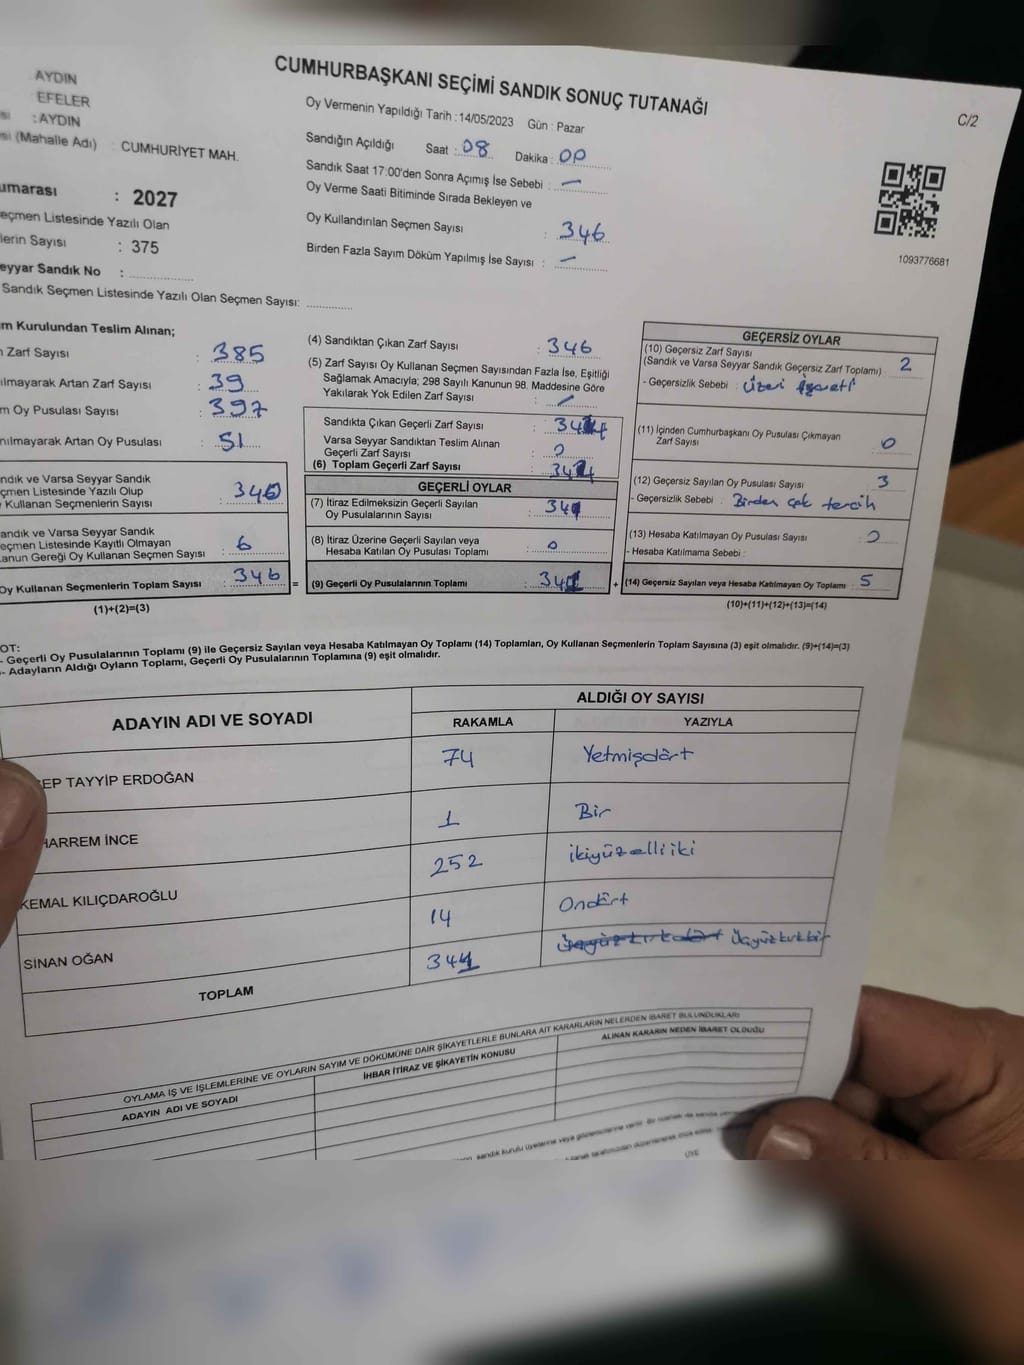 CUMHURBAŞKANI SEÇİMİ SANDIK SONUÇ TUTANAĞI
C/2
AYDIN
EFELER
: AYDIN
(Mahalle Adı) : CUMHURİYET MAH.
: 2027
Seçmen Listesinde Yazılı Olan
Sayısı : 375
Seyyar Sandık No :
Sandık Seçmen Listesinde Yazılı Olan Seçmen Sayısı:
Oy Vermenin Yapıldığı Tarih : 14/05/2023 Gün : Pazar
Sandığın Açıldığı Saat : 08 Dakika : 00
Sandık Saat 17:00'den Sonra Açılmış İse Sebebi : —
Oy Verme Saati Bitiminde Sırada Bekleyen ve
Oy Kullandırılan Seçmen Sayısı : 346
Birden Fazla Sayım Döküm Yapılmış İse Sayısı : —
1093776681
Kurulundan Teslim Alınan;
Zarf Sayısı : 385
Artan Zarf Sayısı : 39
Oy Pusulası Sayısı : 397
Artan Oy Pusulası : 51
Sandık ve Varsa Seyyar Sandık
Seçmen Listesinde Yazılı Olup
Kullanan Seçmenlerin Sayısı
Sandık ve Varsa Seyyar Sandık
Seçmen Listesinde Kayıtlı Olmayan
Kanun Gereği Oy Kullanan Seçmen Sayısı : 6
Oy Kullanan Seçmenlerin Toplam Sayısı : 346 =
(1)+(2)=(3)
(4) Sandıktan Çıkan Zarf Sayısı : 346
(5) Zarf Sayısı Oy Kullanan Seçmen Sayısından Fazla İse, Eşitliği
Sağlamak Amacıyla; 298 Sayılı Kanunun 98. Maddesine Göre
Yakılarak Yok Edilen Zarf Sayısı : —
Sandıkta Çıkan Geçerli Zarf Sayısı : 344
Varsa Seyyar Sandıktan Teslim Alınan
Geçerli Zarf Sayısı : 0
(6) Toplam Geçerli Zarf Sayısı : 344
GEÇERLİ OYLAR
(7) İtiraz Edilmeksizin Geçerli Sayılan
Oy Pusulalarının Sayısı : 341
(8) İtiraz Üzerine Geçerli Sayılan veya
Hesaba Katılan Oy Pusulası Toplamı : 0
(9) Geçerli Oy Pusulalarının Toplamı : 341 +
GEÇERSİZ OYLAR
(10) Geçersiz Zarf Sayısı
(Sandık ve Varsa Seyyar Sandık Geçersiz Zarf Toplamı) : 2
- Geçersizlik Sebebi : Üzeri İşaretli
(11) İçinden Cumhurbaşkanı Oy Pusulası Çıkmayan
Zarf Sayısı : 0
(12) Geçersiz Sayılan Oy Pusulası Sayısı : 3
- Geçersizlik Sebebi : Birden çok tercih
(13) Hesaba Katılmayan Oy Pusulası Sayısı : 0
- Hesaba Katılmama Sebebi :
(14) Geçersiz Sayılan veya Hesaba Katılmayan Oy Toplamı : 5
(10)+(11)+(12)+(13)=(14)
- Geçerli Oy Pusulalarının Toplamı (9) ile Geçersiz Sayılan veya Hesaba Katılmayan Oy Toplamı (14) Toplamları, Oy Kullanan Seçmenlerin Toplam Sayısına (3) eşit olmalıdır. (9)+(14)=(3)
- Adayların Aldığı Oyların Toplamı, Geçerli Oy Pusulalarının Toplamına (9) eşit olmalıdır.
ADAYIN ADI VE SOYADI ALDIĞI OY SAYISI
RAKAMLA YAZIYLA
TAYYİP ERDOĞAN 74 Yetmişdört
İNCE 1 Bir
KEMAL KILIÇDAROĞLU 252 ikiyüzelliiki
SİNAN OĞAN 14 Ondört
TOPLAM 341 Üçyüzkırkdört Üçyüzkırkbir
OYLAMA İŞ VE İŞLEMLERİNE VE OYLARIN SAYIM VE DÖKÜMÜNE DAİR ŞİKAYETLERLE BUNLARA AİT KARARLARIN NELERDEN İBARET BULUNDUKLARI
ADAYIN ADI VE SOYADI İHBAR İTİRAZ VE ŞİKAYETİN KONUSU ALINAN KARARIN NEDEN İBARET OLDUĞU
sandık kurulu üyelerine veya gözlemcilerine verilir.
ÜYE